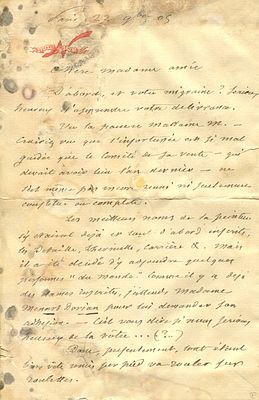 Paris 27 9bre 05
Chère madame amie
D'abord, et votre migraine? Serions
heureux d'apprendre votre délivrance.
Vu la pauvre Madame M. —
que l'infortunée est si mal
guidée que le Comité de la vente — qui
devait avoir lieu l'an dernier — ne
s'est même pas encore réuni ni seulement
constitué au complet.
Les meilleurs noms de la peinture
y étaient déjà et tout d'abord inscrits,
Detaille, Lhermitte, Carrière &. Mais
il a été décidé d'y adjoindre quelques
personnes "du monde". Comme il y a déjà
des dames inscrites, j'attends madame
Menard Dorian pour lui demander son
adhésion. — C'est vous dire si nous serions
heureux de la vôtre ... (?...)
Donc, présentement, tout étant
mis par pied va rouler sur
roulettes.